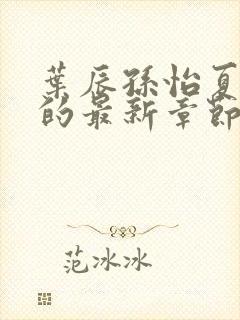 葉辰孫怡夏
的最新章節
范冰冰